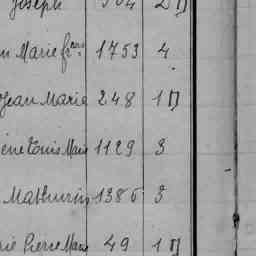 Joseph 304 2 D
n Marie fr.çois 1753 4
Jean Marie 248 1 D
ène Louis Marie 1129 3
Mathurin 1386 3
rie Pierre Marie 49 1 D